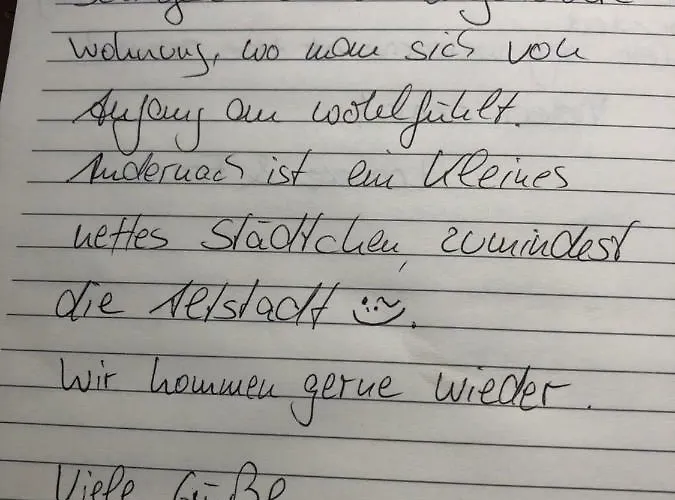 Wohnung, wo man sich von
Anfang an wohlfühlt.
Andernach ist ein kleines
nettes Städtchen, zumindest
die Altstadt
Wir kommen gerne wieder.
Viele Grüße